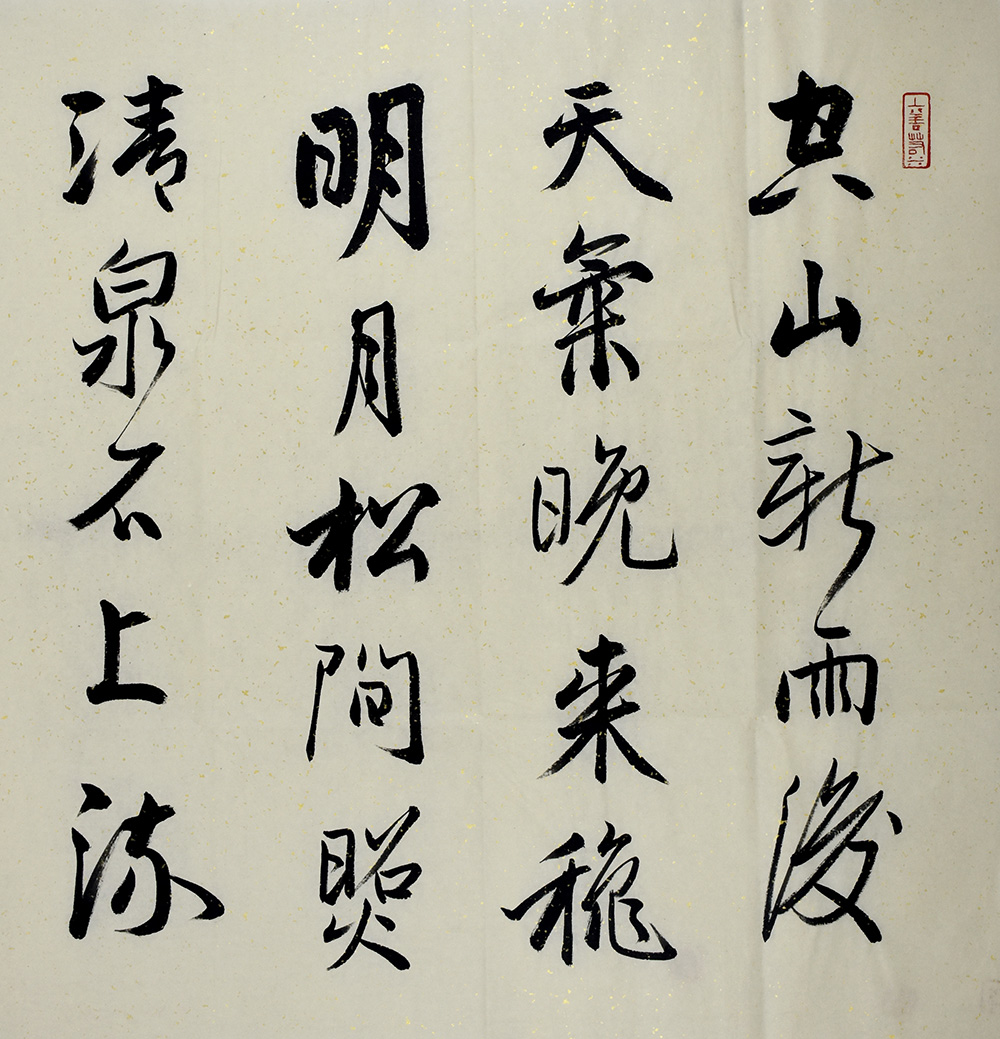 空山新雨後
天氣晚来穐
明月松間照
清泉石上流